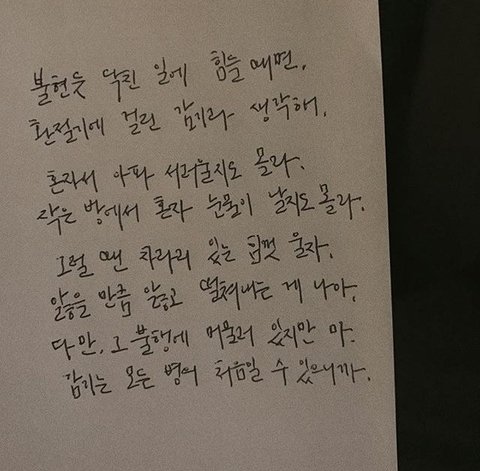 불현듯 닥친 일에 힘들 때면,
환절기에 걸린 감기라 생각해.
혼자서 아파 서러울지도 몰라.
작은 방에서 혼자 눈물이 날지도 몰라.
그럴 땐 차라리 있는 힘껏 울자.
앓을 만큼 앓고 떨쳐내는 게 나아.
다만, 그 불행에 머물러 있지만 마.
감기는 모든 병의 처음일 수 있으니까.